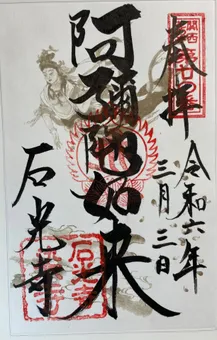 奉拝
令和六年
三月三日
阿弥陀如来
石光寺
石光寺